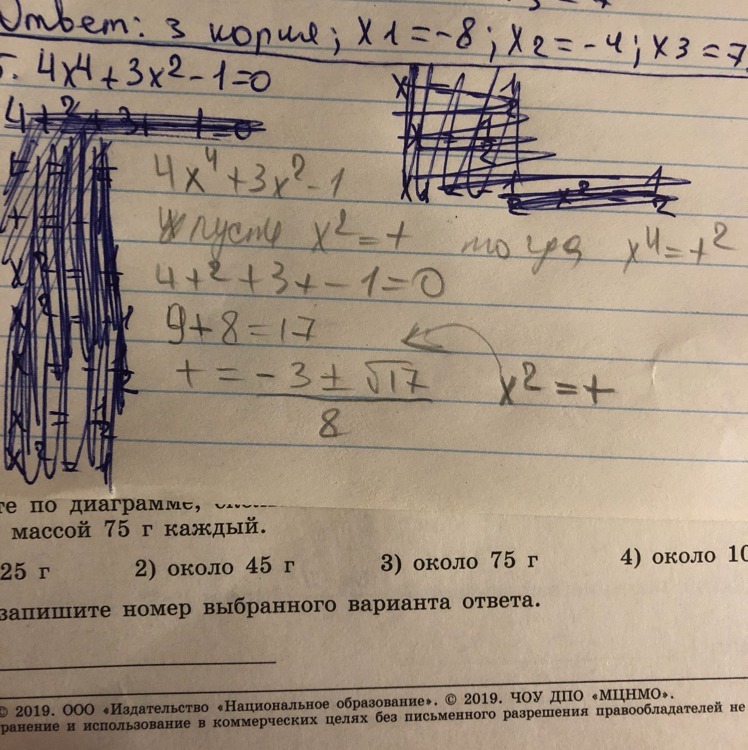 Ответ: 3 корня; x1=-8; x2=-4; x3=7
5. 4x⁴+3x²-1=0
4x⁴+3x²-1
пусть x²=t тогда x⁴=t²
4t²+3t-1=0
9+8=17
t = -3±√17 / 8
x²=t
те по диаграмме,
массой 75 г каждый.
25 г 2) около 45 г 3) около 75 г 4) около 10
запишите номер выбранного варианта ответа.
© 2019. ООО «Издательство «Национальное образование». © 2019. ЧОУ ДПО «МЦНМО».
ранение и использование в коммерческих целях без письменного разрешения правообладателей не